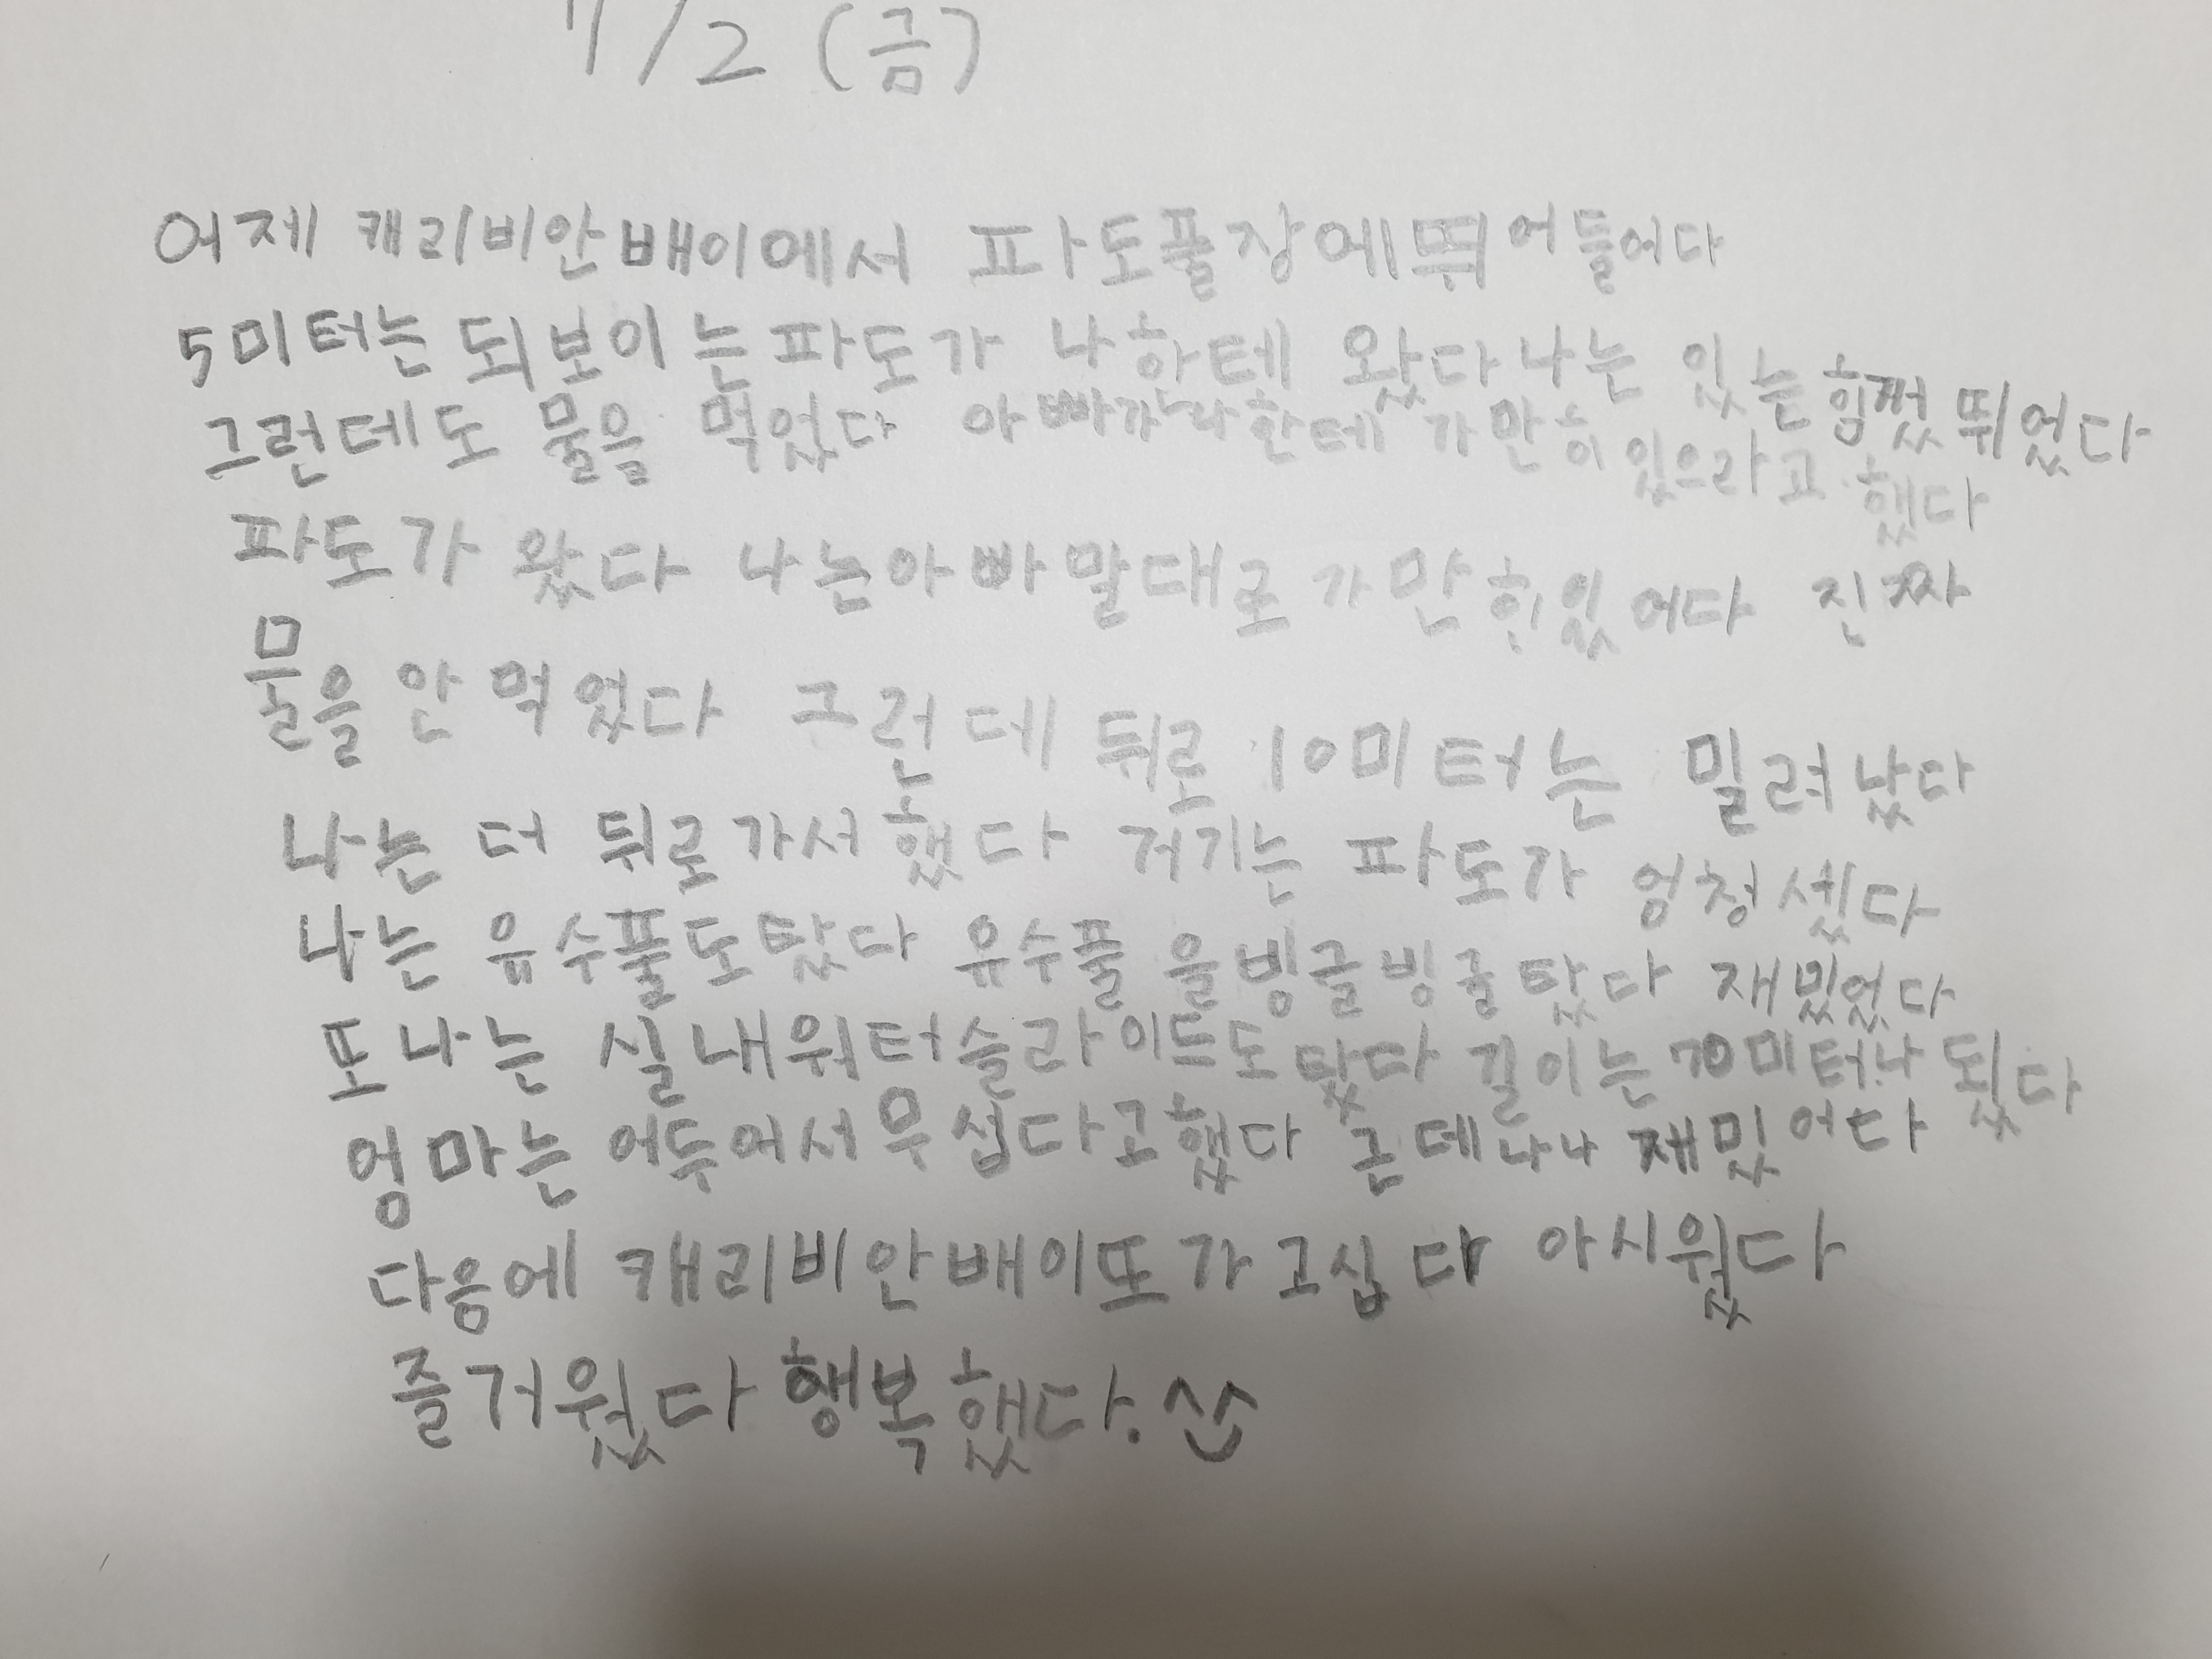 7/2 (금)
어제 캐리비안배이에서 파도풀장에뛰어들어다
5미터는 되보이는 파도가 나한테 왔다 나는 있는힘껏 뛰었다
그런데도 물을 먹었다 아빠가나한테 가만히 있으라고 했다
파도가 왔다 나는아빠말대로 가만히있어다 진짜
물을 안먹었다 그런데 뒤로 10미터는 밀려났다
나는 더 뒤로가서했다 거기는 파도가 엉청셌다
나는 유수풀도탔다 유수풀을빙글빙글탔다 재밌었다
또나는 실내워터슬라이드도탔다 길이는70미터나 됬다
엉마는 어두어서무섭다고했다 근데나나 재밌어다
다응에 캐리비안배이또가고십다 아시웠다
즐거웠다 행복했다.